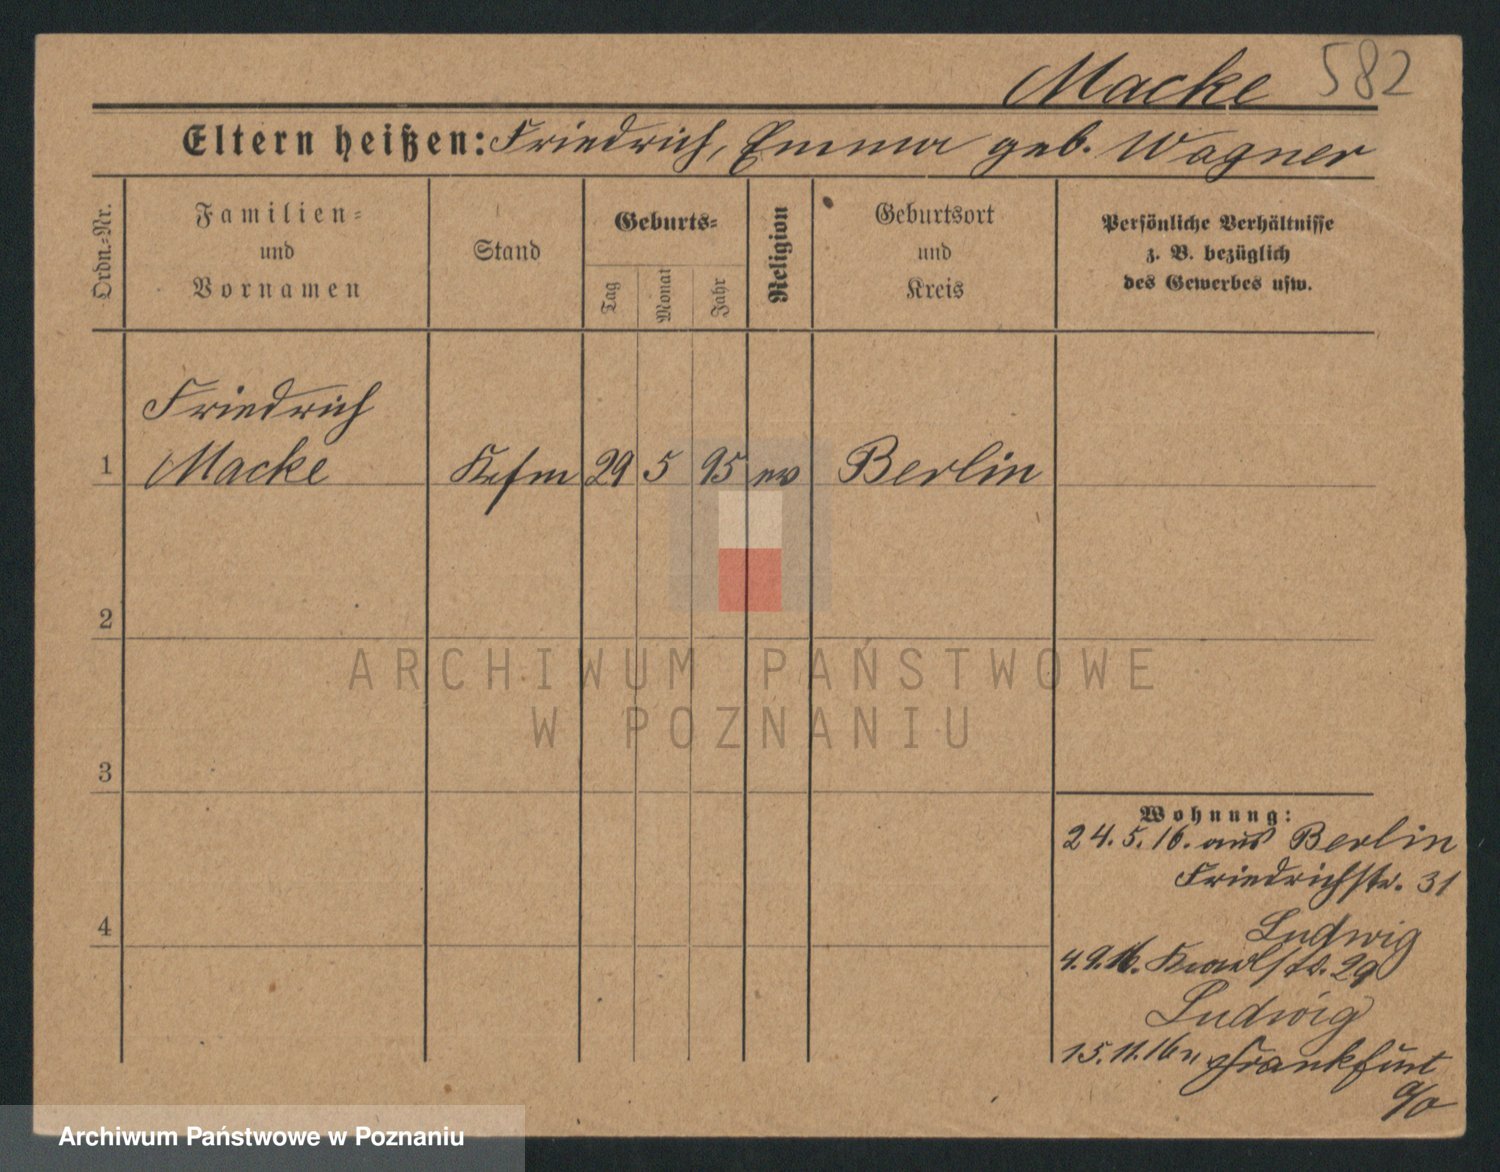 Macke 582
Eltern heißen: Friedrich, Emma geb. Wagner
Ordn.-Nr.
Familien-
und
Vornamen
Stand
Geburts-
Tag
Monat
Jahr
Religion
Geburtsort
und
Kreis
Persönliche Verhältnisse
z. B. bezüglich
des Gewerbes usw.
Friedrich
1 Macke Kfm 29 5 95 ev Berlin
2
ARCHIWUM PAŃSTWOWE
W POZNANIU
3
4
Wohnung:
24.5.16. aus Berlin
Friedrichstr. 31
Ludwig
4.9.16. 29
Ludwig
15.11.16 n Frankfurt
a/o
Archiwum Państwowe w Poznaniu